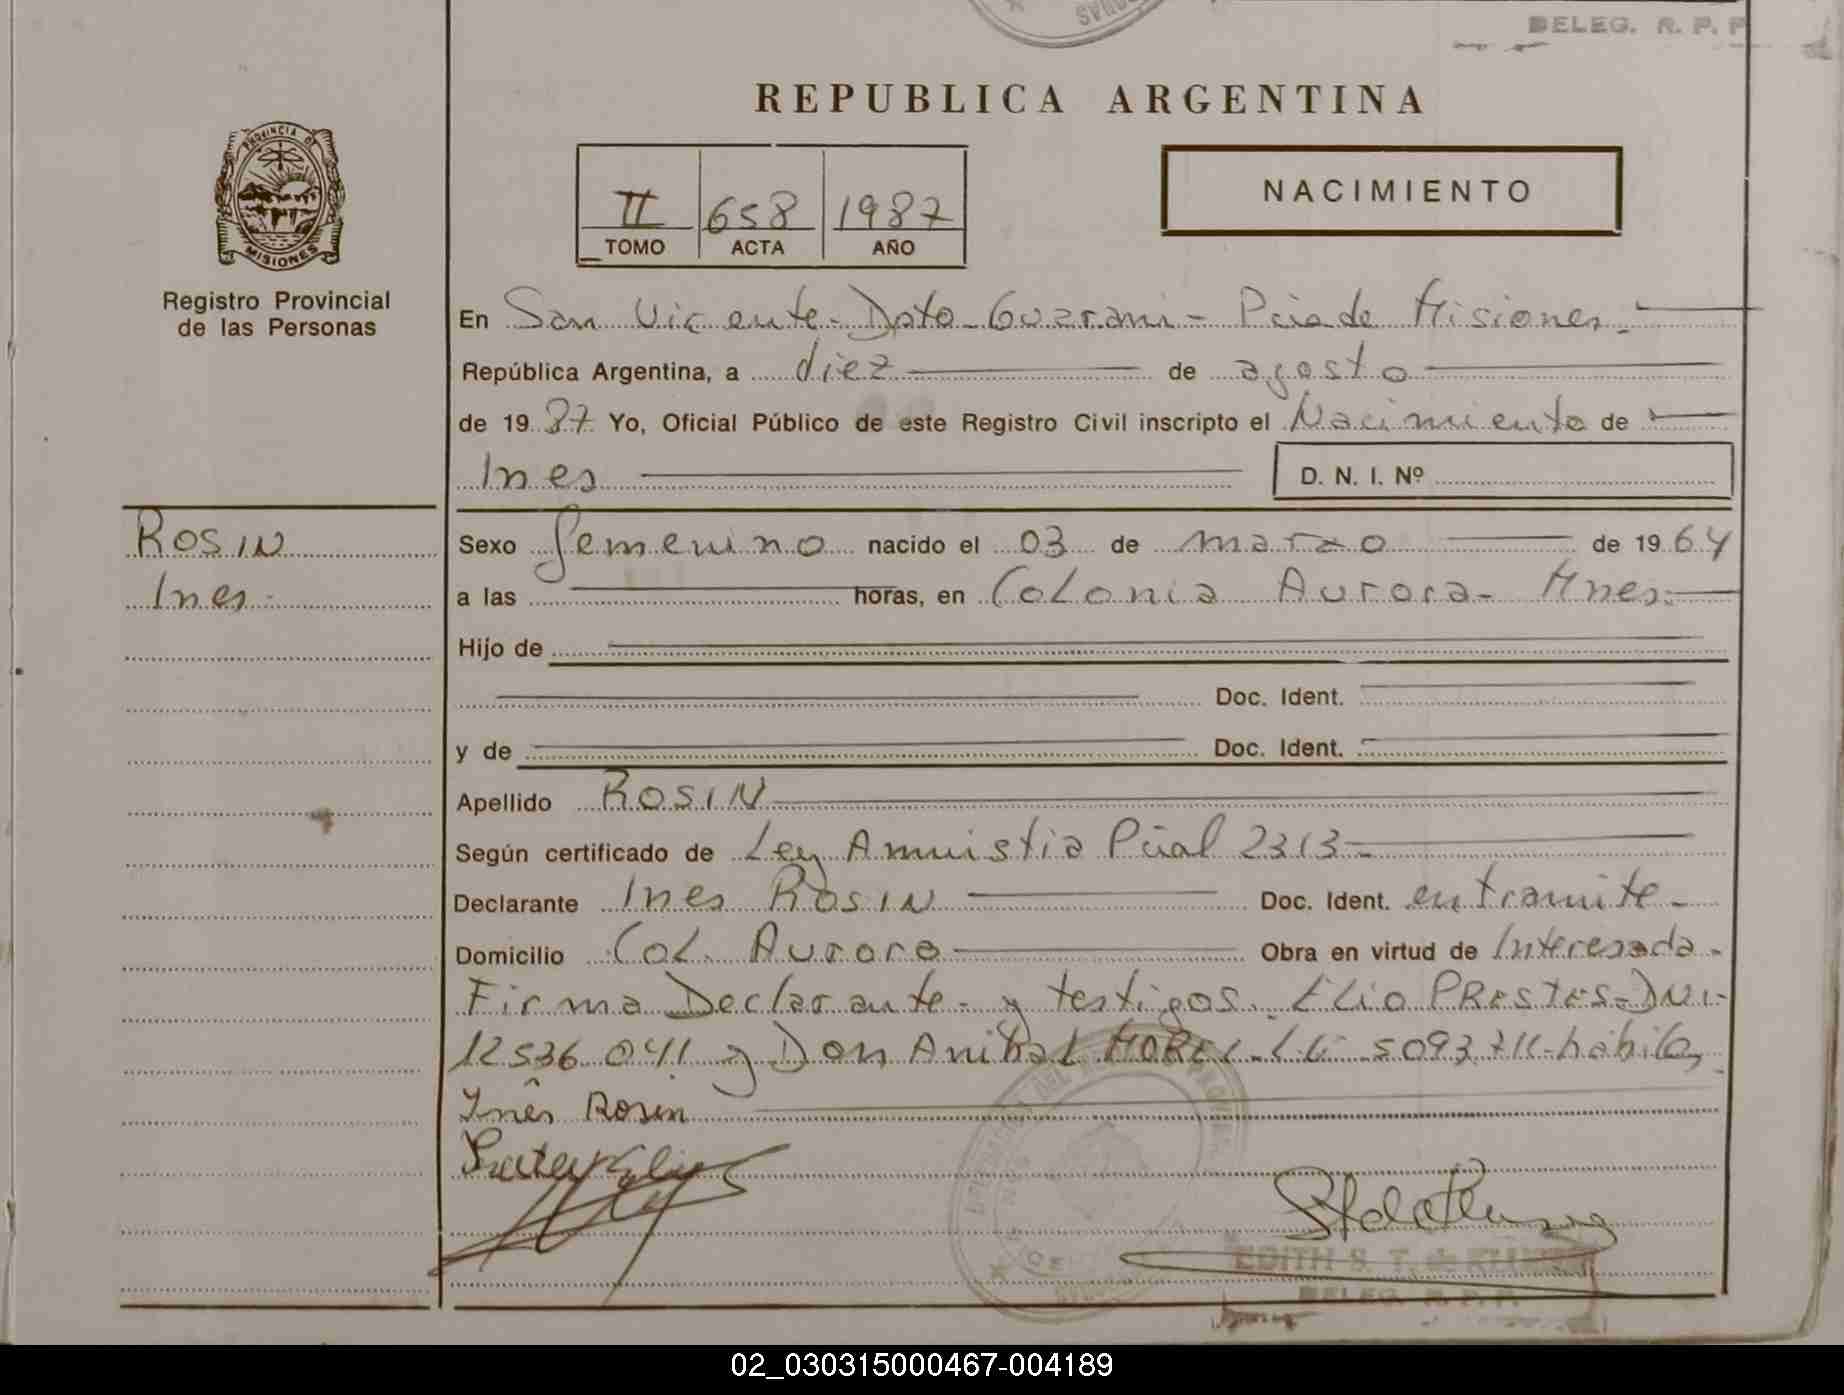 DELEG. R. P. P.
REPUBLICA ARGENTINA
PROVINCIA DE
MISIONES
Registro Provincial
de las Personas
II 658 1987
TOMO ACTA AÑO
NACIMIENTO
En San Vicente - Dpto - Guarani - Pcia de Misiones.-
República Argentina, a diez de agosto
de 19 87 Yo, Oficial Público de este Registro Civil inscripto el Nacimiento de
Ines D. N. I. Nº
ROSIN
Ines.
Sexo femenino nacido el 03 de marzo de 19 64
a las horas, en Colonia Aurora - Mnes.
Hijo de
Doc. Ident.
y de Doc. Ident.
Apellido ROSIN
Según certificado de Ley Amnistia Pcial 2313 -
Declarante Ines ROSIN Doc. Ident. en tramite -
Domicilio Col. Aurora Obra en virtud de Interesada -
Firma Declarante - y testigos. ELio PRESTES - DNI -
12536.041 y Don Anibal MOREL - L.E. 
Inês Rosin
EDITH S. T. de
DELEG. R. P. P.
02_030315000467-004189